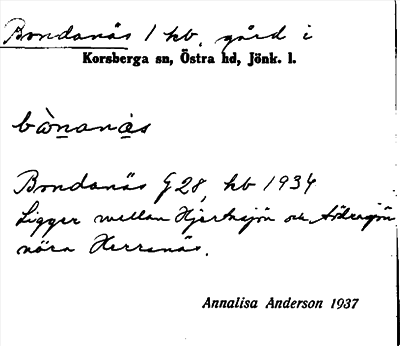 Bondanäs 1 hb, gård i
Korsberga sn, Östra hd, Jönk. l.
bònanàs
Bondanäs G 28, hb 1934
Ligger mellan Hjertasjön och
nära Herrsnäs.
Annalisa Anderson 1937